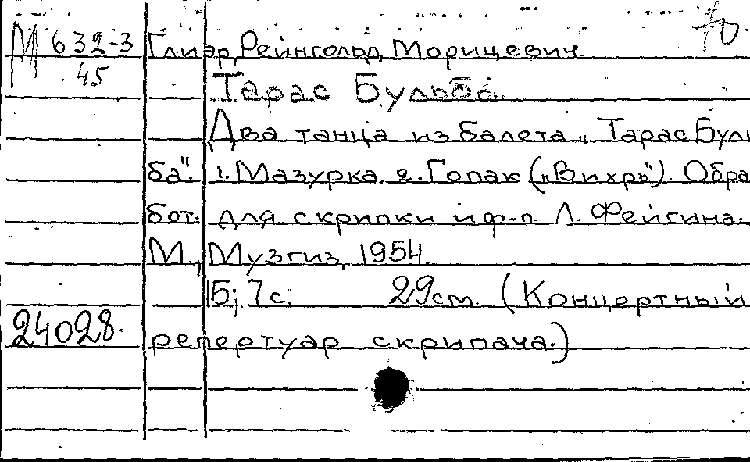 М 632-3 Глиэр, Рейнгольд Морицевич
45
Тарас Бульба.
Два танца из балета „Тарас Буль
ба". 1. Мазурка. 2. Гопак („Вихрь"). Обра
бот. для скрипки и ф-п. Л. Фейгина.
М., Музгиз, 1954.
15; 7 с. 29 см. (Концертный
24028. репертуар скрипача.)